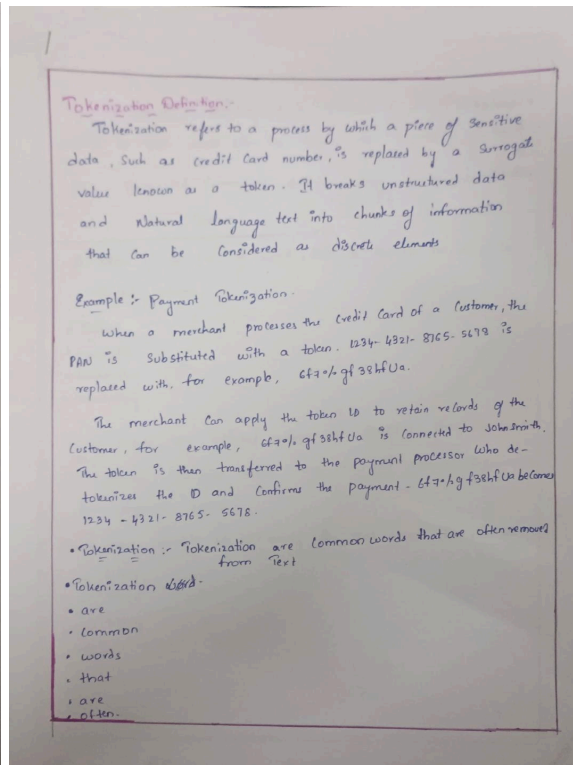 Tokenization Definition:-
Tokenization refers to a process by which a piece of Sensitive
data, Such as credit Card number, is replaced by a Surrogat
value known as a token. It breaks unstructured data
and Natural language text into chunks of information
that Can be Considered as discrete elements
Example :- Payment Tokenization.
When a merchant processes the Credit Card of a Customer, the
PAN is Substituted with a token. 1234- 4321- 8765- 5678 is
replaced with. for example, 6f7%gf38hfUa.
The merchant Can apply the token ID to retain records of the
Customer, for example, 6f7%gf38hfUa is Connected to John Smith.
The token is then transferred to the payment processor who de-
tokenizes the ID and Confirms the payment - 6f7%gf38hfUa becomes
1234 - 4321- 8765- 5678.
• Tokenization :- Tokenization are Common words that are often removed
from Text
• Tokenization
• are
• Common
• words
• that
• are
• often.